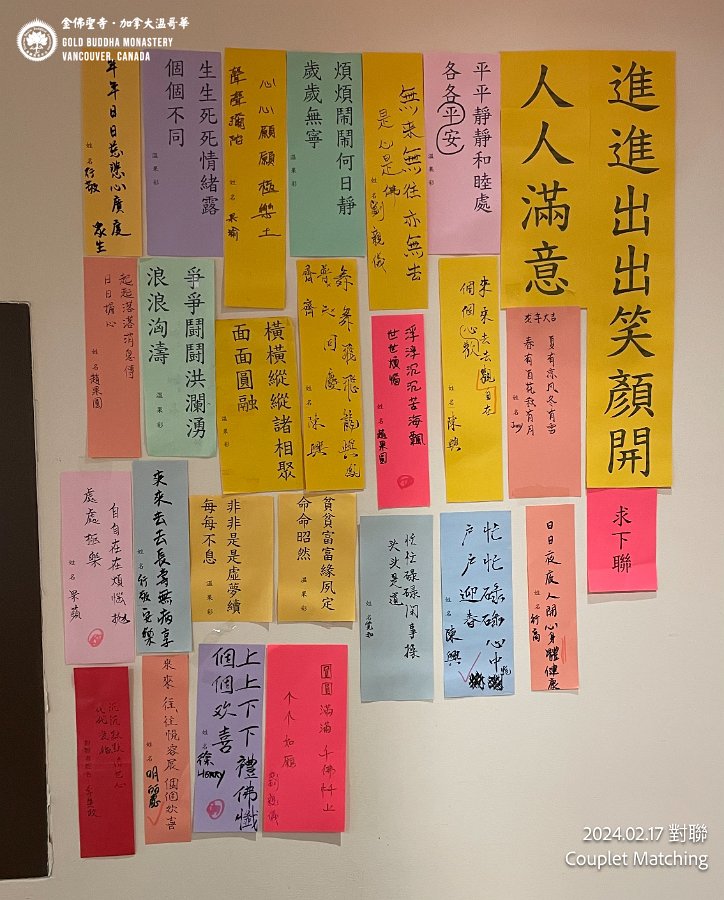 金佛聖寺·加拿大溫哥華
GOLD BUDDHA MONASTERY
VANCOUVER, CANADA
進進出出笑顏開
人人滿意
求下聯
平平靜靜和睦處
各各平安
溫果彩
無來無往亦無去
是心是佛
劉親儀
煩煩鬧鬧何日靜
歲歲無寧
溫果彩
心心願願極樂土
姓名
生生死死情緒露
個個不同
溫果彩
年年日日慈悲心廣度
眾生
姓名 行敬
亥年大吉
夏有凉风冬有雪
春有百花秋有月
姓名 Joy
來來去去觀自在
個個心歡
姓名 陳興
浮浮沉沉苦海飄
世世煩惱
姓名 趙果圓
舞舞飛飛龍興盛
齊齊同慶
姓名 陳興
橫橫縱縱諸相聚
面面圓融
溫果彩
爭爭鬪鬪洪瀾湧
浪浪洶濤
溫果彩
起起落落消息傳
日日擔心
姓名 趙果圓
日日夜夜人開心身體健康
姓名 行商
忙忙碌碌心中
戶戶迎春
姓名 陳興
忙忙碌碌閑事操
头头是道
姓名
貧貧富富緣夙定
命命昭然
溫果彩
非非是是虛夢續
每每不息
溫果彩
來來去去長壽無病享
姓名 行敬
自自在在煩惱拋
處處極樂
姓名 果蘋
圓圓滿滿千佛科上
个个如願
劉親儀
上上下下禮佛懺
個個欢喜
姓名 徐 HENRY
來來往往悅容展個個欢喜
姓名 明慧
2024.02.17 對聯
Couplet Matching